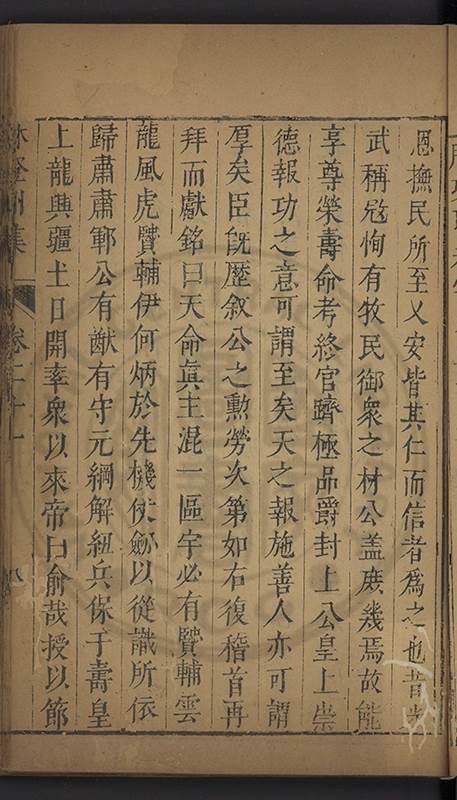 恩撫民所至乂安皆其仁而信者爲之也昔光
武稱寇恂有牧民御衆之材公蓋庶幾焉故能
享尊榮壽命考終官躋極品爵封上公皇上崇
德報功之意可謂至矣天之報施善人亦可謂
厚矣臣旣歷叙公之勳勞次第如右復稽首再
拜而獻銘曰天命眞主混一區宇必有贒輔雲
龍風虎贒輔伊何炳於先機仗劒以從識所依
歸肅肅鄆公有猷有守元綱解紐兵保于壽皇
上龍興疆土日開率衆以來帝曰俞哉授以節
卷二十一
八